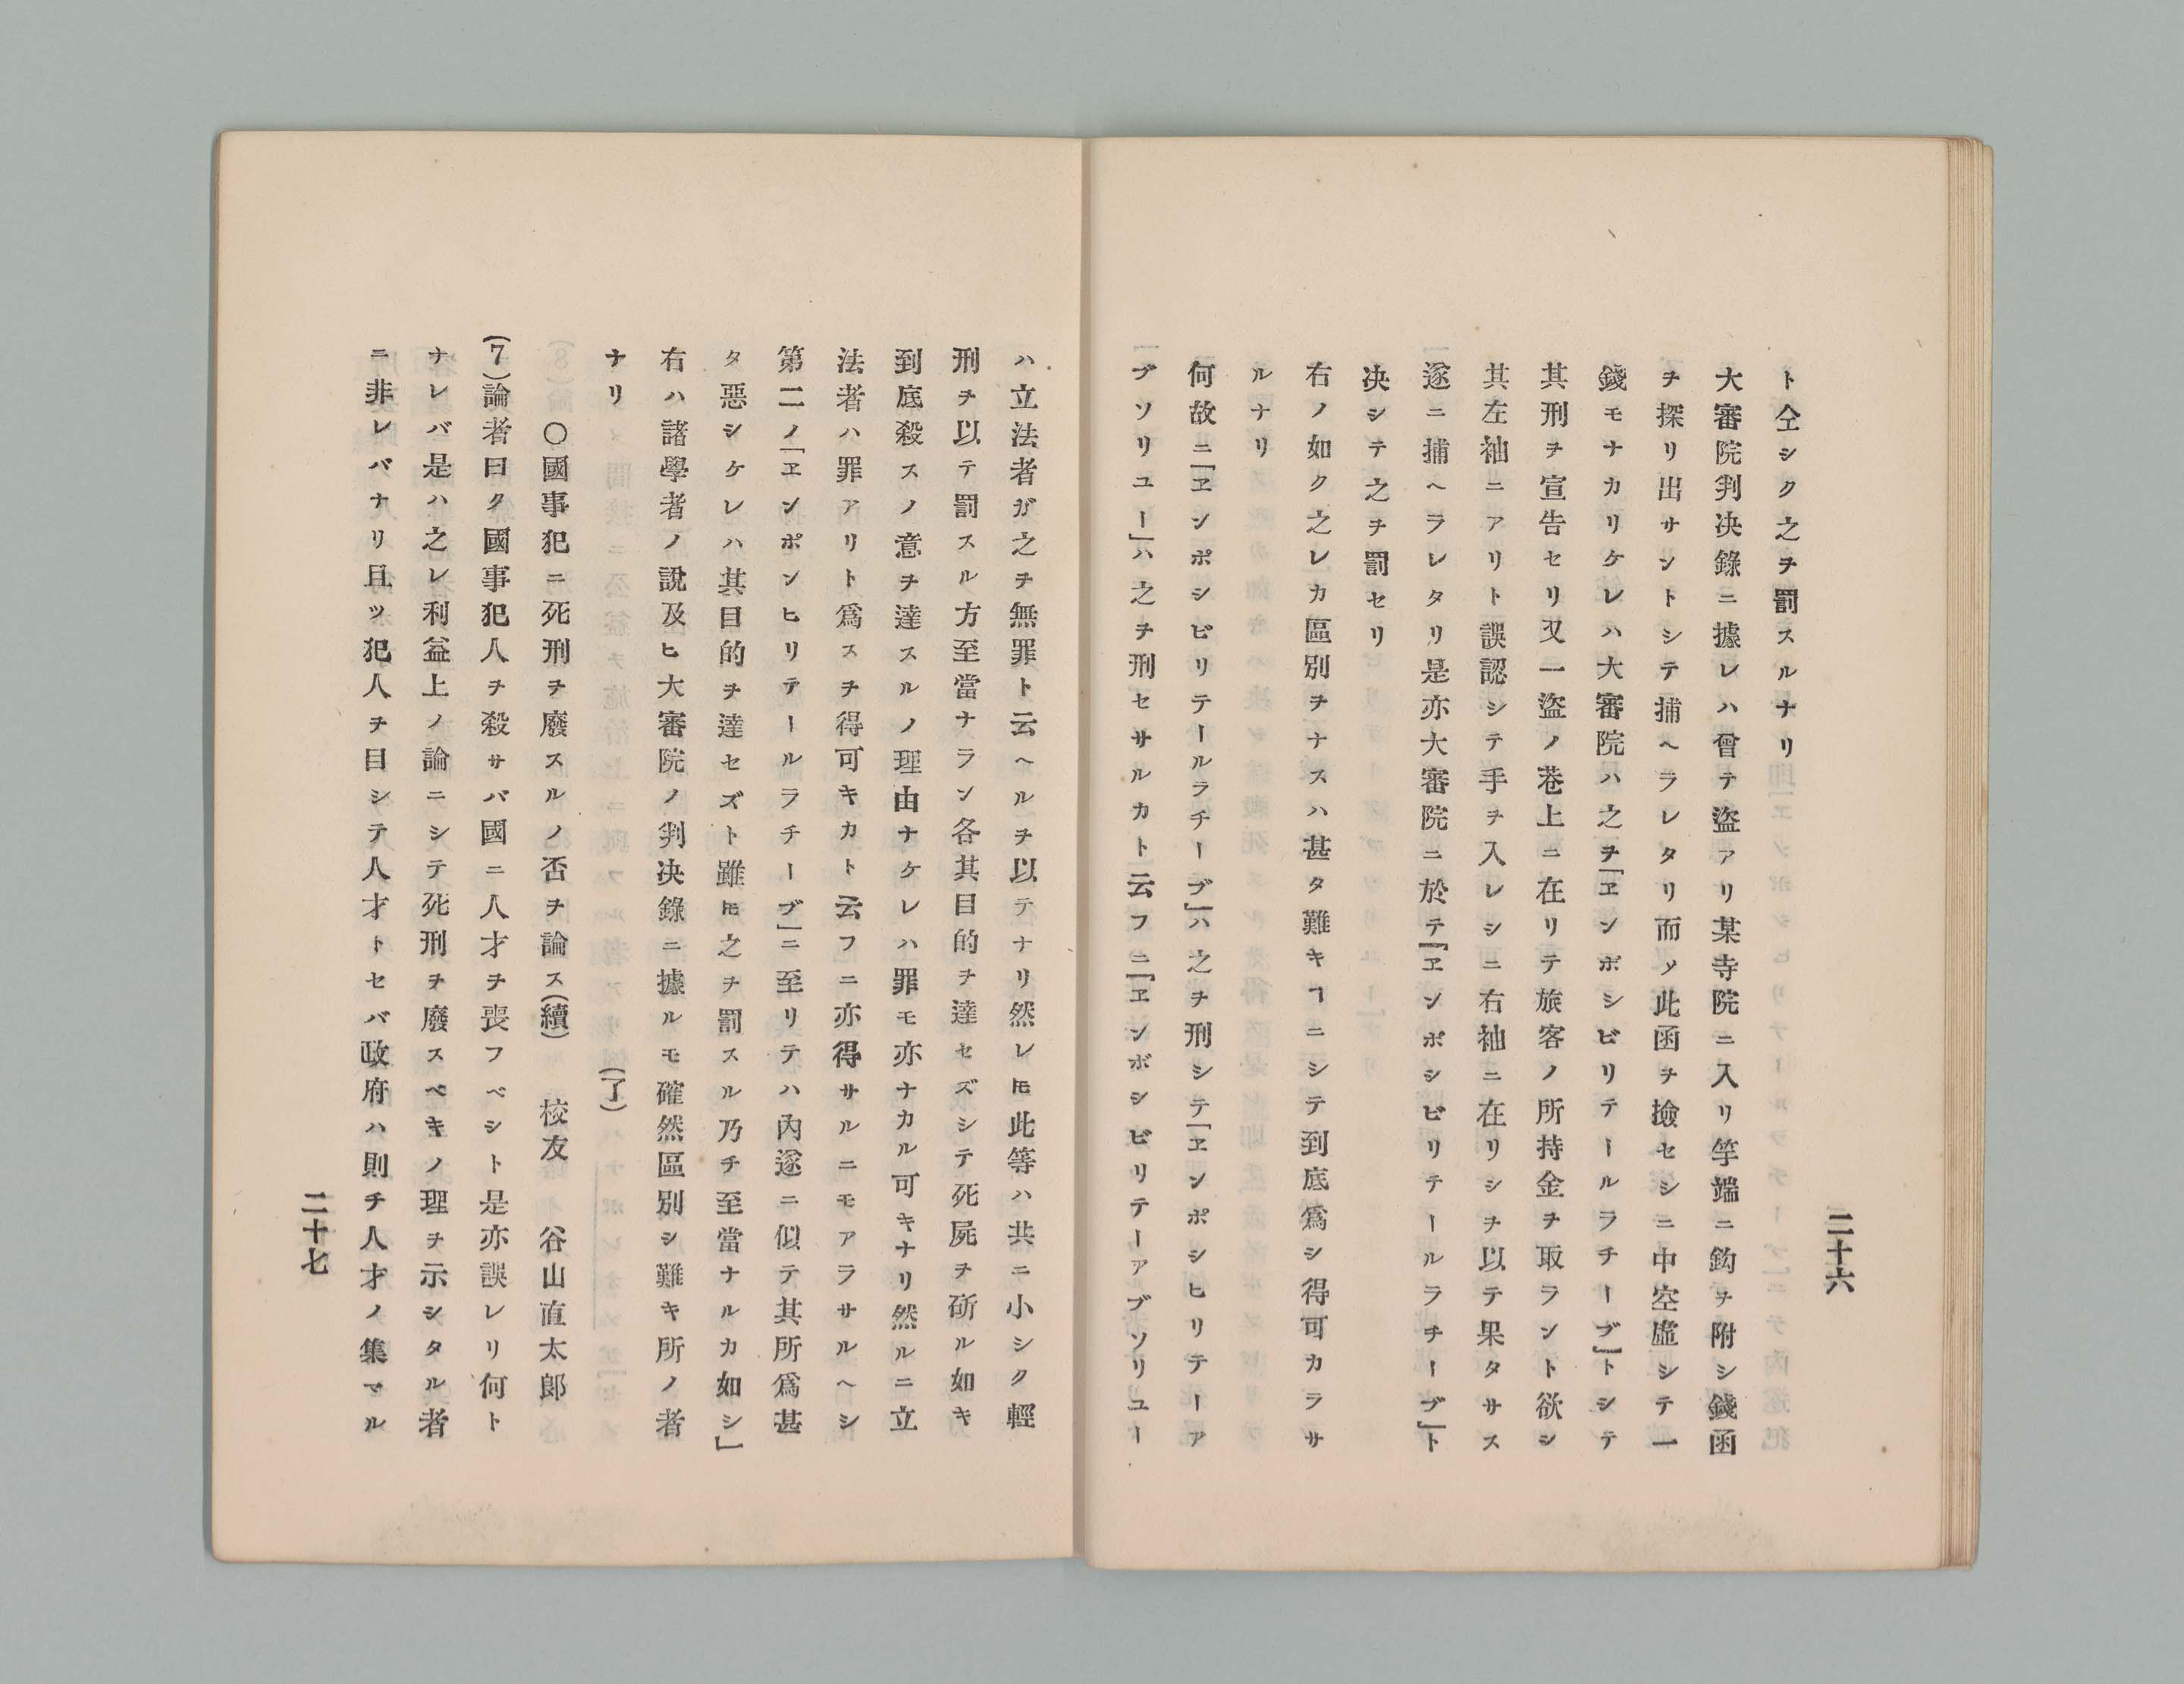 二十六
ト仝シク之ヲ罰スルナリ
大審院判决錄ニ據レハ曾テ盜アリ某寺院ニ入リ竿端ニ鈎ヲ附シ錢函
ヲ探リ出サントシテ捕ヘラレタリ而ソ此函ヲ撿セシニ中空虛シテ一
錢モナカリケレハ大審院ハ之ヲ「ヱンポシビリテールラチーブ」トシテ
其刑ヲ宣告セリ又一盜ノ巷上ニ在リテ旅客ノ所持金ヲ取ラント欲シ
其左袖ニアリト誤認シテ手ヲ入レシニ右袖ニ在リシヲ以テ果タサス
遂ニ捕ヘラレタリ是亦大審院ニ於テ「ヱンポシビリテールラチーブ」ト
决シテ之ヲ罰セリ
右ノ如ク之レカ區別ヲナスハ甚タ難キヿニシテ到底爲シ得可カラサ
ルナリ
何故ニ「ヱンポシビリテールラチーブ」ハ之ヲ刑シテ「ヱンポシヒリテーア
ブソリユー」ハ之ヲ刑セサルカト云フニ「ヱンボシビリテーアブソリユー
ハ立法者ガ之ヲ無罪ト云ヘルヲ以テナリ然レ𪜈此等ハ共ニ小シク輕
刑ヲ以テ罰スル方至當ナラン各其目的ヲ達セズシテ死屍ヲ斫ル如キ
到底殺スノ意ヲ達スルノ理由ナケレハ罪モ亦ナカル可キナリ然ルニ立
法者ハ罪アリト爲スヲ得可キカト云フニ亦得サルニモアラサルヘシ
第二ノ「ヱンポンヒリテールラチーブ」ニ至リテハ內遂ニ似テ其所爲甚
タ惡シケレハ其目的ヲ達セズト雖𪜈之ヲ罰スル乃チ至當ナルカ如シ」
右ハ諸學者ノ說及ヒ大審院ノ判决錄ニ據ルモ確然區別シ難キ所ノ者
ナリ　(了)
○國事犯ニ死刑ヲ廢スルノ否ヲ論ス(續)　校友　谷山直太郞
(7)論者曰ク國事犯人ヲ殺サバ國ニ人才ヲ喪フベシト是亦誤レリ何ト
ナレバ是ハ之レ利益上ノ論ニシテ死刑ヲ廢スベキノ理ヲ示シタル者
ニ非レバナリ且ツ犯人ヲ目シテ人才トセバ政府ハ則チ人才ノ集マル
二十七